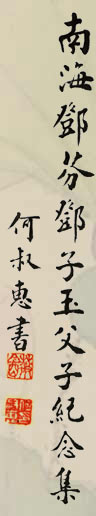 南海鄧芬鄧子玉父子紀念集
何叔惠書